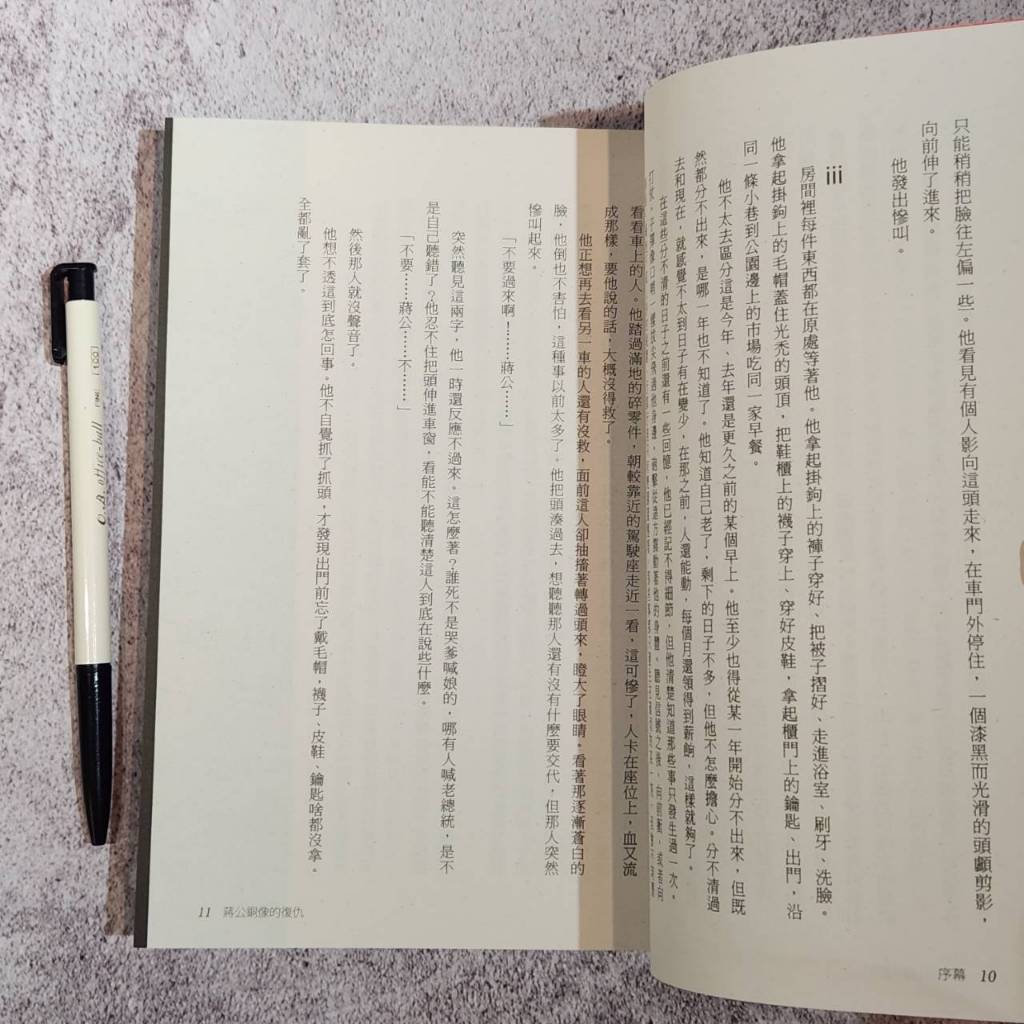 只能稍稍把臉往左偏一些。他看見有個人影向這頭走來,在車門外停住,一個漆黑而光滑的頭顱剪影,
向前伸了進來。
他發出慘叫。
iii
房間裡每件東西都在原處等著他。他拿起掛鉤上的褲子穿好、把被子摺好、走進浴室、刷牙、洗臉。
他拿起掛鉤上的毛帽蓋住光禿的頭頂,把鞋櫃上的襪子穿上、穿好皮鞋,拿起櫃門上的鑰匙、出門,沿
同一條小巷到公園邊上的市場吃同一家早餐。
他不太去區分這是今年、去年還是更久之前的某個早上。他至少也得從某一年開始分不出來,但既
然都分不出來,是哪一年也不知道了。他知道自己老了,剩下的日子不多,但他不怎麼擔心。分不清過
去和現在,就感覺不太到日子有在變少,在那之前,人還能動,每個月還領得到薪餉,這樣就夠了。
在這些分不清的日子之前還有一些回憶,他已經記不得細節,但他清楚知道那些事只發生過一次。
看看車上的人。他踏過滿地的碎零件,朝較靠近的駕駛座走近一看,這可慘了,人卡在座位上,血又流
成那樣,要他說的話,大概沒得救了。
他正想再去看另一車的人還有沒救,面前這人卻抽搐著轉過頭來,瞪大了眼睛。看著那逐漸蒼白的
臉,他倒也不害怕,這種事以前太多了。他把頭湊過去,想聽聽那人還有沒有什麼要交代,但那人突然
慘叫起來。
「不要過來啊!⋯⋯⋯蔣公⋯⋯」
突然聽見這兩字,他一時還反應不過來。這怎麼著?誰死不是哭爹喊娘的,哪有人喊老總統,是不
是自己聽錯了?他忍不住把頭伸進車窗,看能不能聽清楚這人到底在說些什麼。
「不要⋯⋯蔣公⋯⋯不⋯⋯」
然後那人就沒聲音了。
他想不透這到底怎回事。他不自覺抓了抓頭,才發現出門前忘了戴毛帽,襪子、皮鞋、鑰匙啥都沒拿。
全都亂了套了。
序幕 10
11 蔣公銅像的復仇
O.B. office-ball